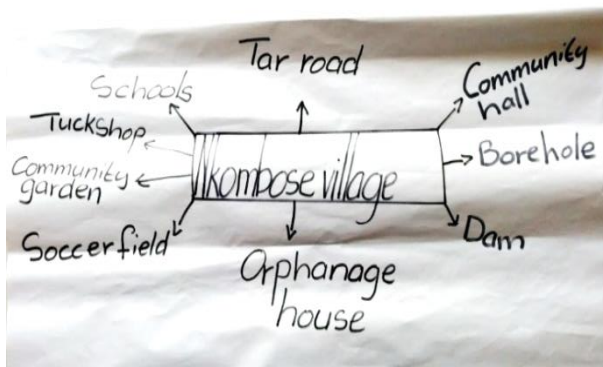 Tar road
Schools
Community
hall
Tuckshop
Borehole
Community
garden
Nkombose village
Soccer field
Dam
Orphanage
house